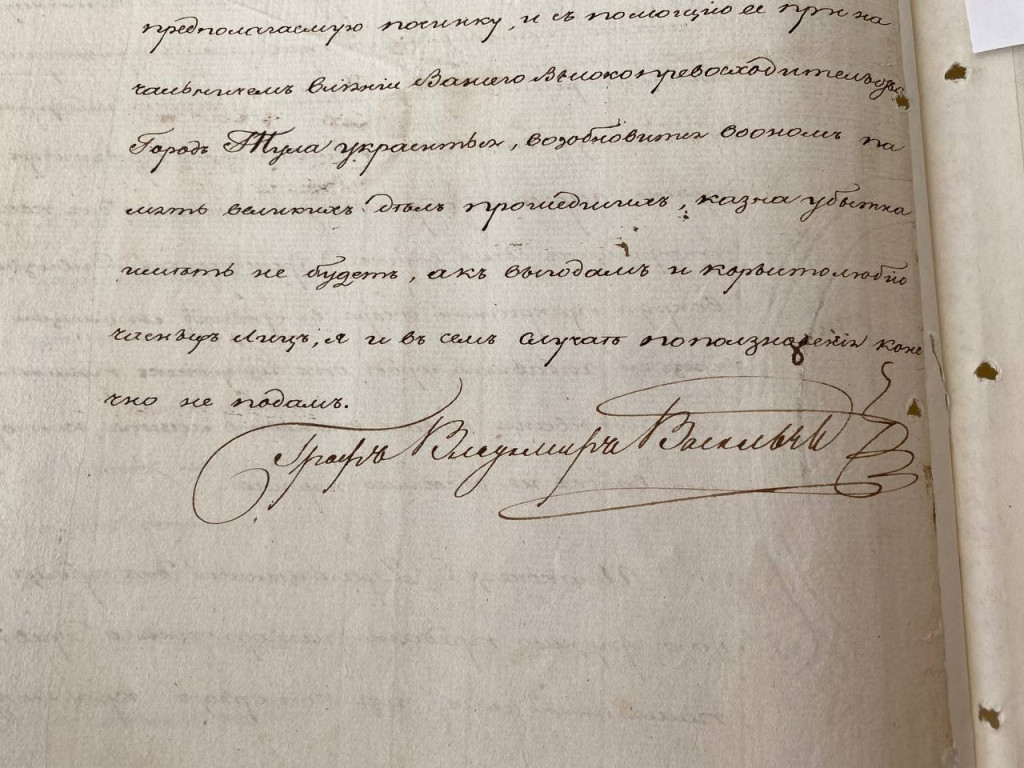 предполагаемую починку, и съ помощію ее при на
чальничемъ вліяніи Вашего Высокопревосходительства
Городъ Тула украсится, возобновится воономъ па
мять великихъ дѣлъ прошедшихъ, казна убытка
имѣть не будетъ, а къ выгодамъ и корыстолюбію
часныхъ лицъ, я и въ семъ случаѣ поползновеніи коне
чно не подамъ.
Графъ Владимиръ Васильичь